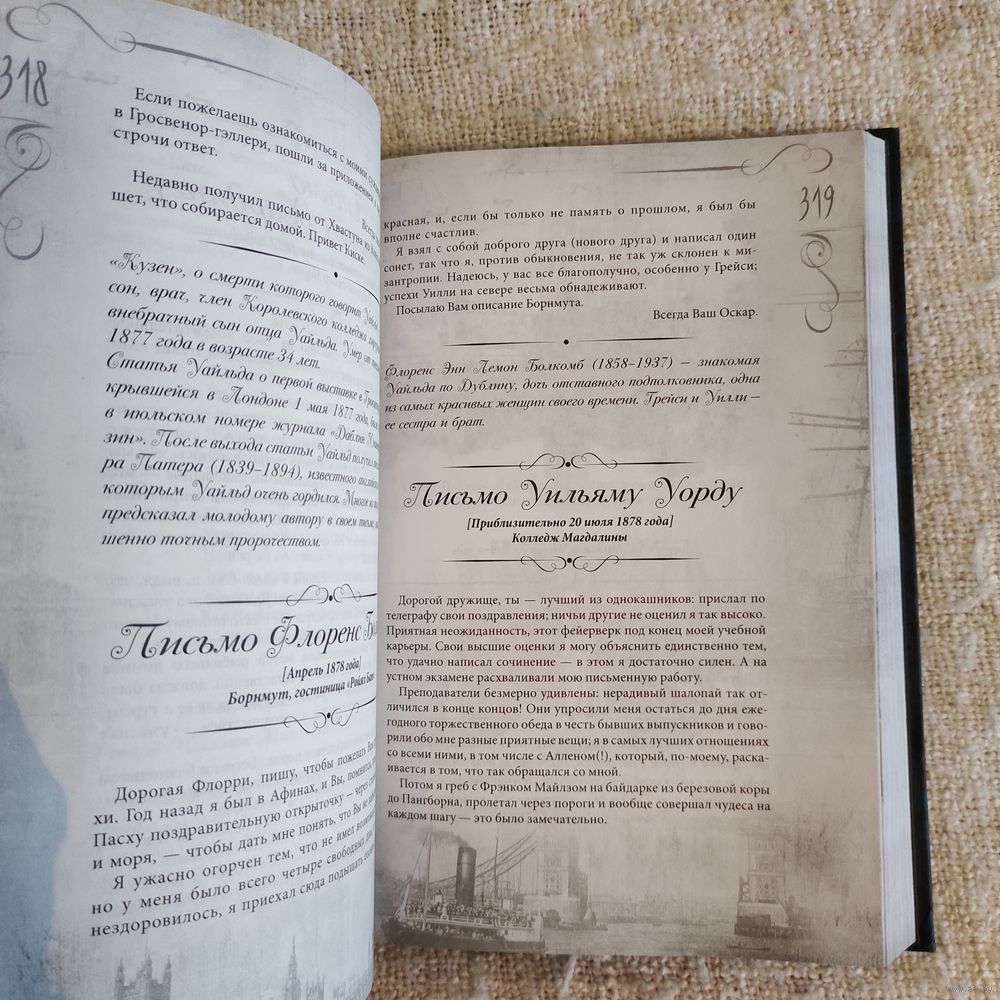 318
Если пожелаешь ознакомиться с моими
в Гросвенор-гэллери, пошли за приложением
строчи ответ.
Недавно получил письмо от Хвастуна из
шет, что собирается домой. Привет Киске.
«Кузен», о смерти которого говорит
сон, врач, член Королевского колледжа
внебрачный сын отца Уайльда. Умер от
1877 года в возрасте 34 лет.
Статья Уайльда о первой выставке в
крывшейся в Лондоне 1 мая 1877 года,
в июльском номере журнала «Даблин
зин». После выхода статьи Уайльд получил
ра Патера (1839–1894), известного
которым Уайльд очень гордился. Многое из
предсказал молодому автору в своем письме,
шенно точным пророчеством.
Письмо Флоренс
[Апрель 1878 года]
Борнмут, гостиница «Ройял Бат
Дорогая Флорри, пишу, чтобы пожелать Вам
хи. Год назад я был в Афинах, и Вы, помнится,
Пасху поздравительную открыточку — через
и моря, — чтобы дать мне понять, что Вы не
Я ужасно огорчен тем, что не имел
но у меня было всего четыре свободных дня,
нездоровилось, я приехал сюда подышать
319
красная, и, если бы только не память о прошлом, я был бы
вполне счастлив.
Я взял с собой доброго друга (нового друга) и написал один
сонет, так что я, против обыкновения, не так уж склонен к ми-
зантропии. Надеюсь, у вас все благополучно, особенно у Грейси;
успехи Уилли на севере весьма обнадеживают.
Посылаю Вам описание Борнмута.
Всегда Ваш Оскар.
Флоренс Энн Лемон Болкомб (1858–1937) — знакомая
Уайльда по Дублину, дочь отставного подполковника, одна
из самых красивых женщин своего времени. Грейси и Уилли —
ее сестра и брат.
Письмо Уильяму Уорду
[Приблизительно 20 июля 1878 года]
Колледж Магдалины
Дорогой дружище, ты — лучший из однокашников: прислал по
телеграфу свои поздравления; ничьи другие не оценил я так высоко.
Приятная неожиданность, этот фейерверк под конец моей учебной
карьеры. Свои высшие оценки я могу объяснить единственно тем,
что удачно написал сочинение — в этом я достаточно силен. А на
устном экзамене расхваливали мою письменную работу.
Преподаватели безмерно удивлены: нерадивый шалопай так от-
личился в конце концов! Они упросили меня остаться до дня еже-
годного торжественного обеда в честь бывших выпускников и гово-
рили обо мне разные приятные вещи; я в самых лучших отношениях
со всеми ними, в том числе с Алленом(!), который, по-моему, раска-
ивается в том, что так обращался со мной.
Потом я греб с Фрэнком Майлзом на байдарке из березовой коры
до Пангборна, пролетал через пороги и вообще совершал чудеса на
каждом шагу — это было замечательно.